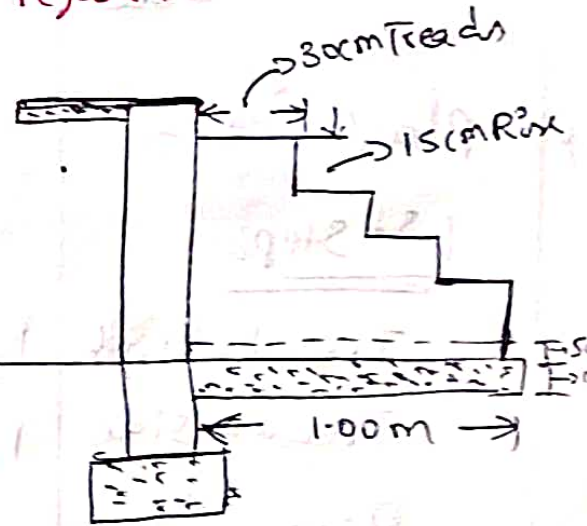 30cm Treads
15cm Rise
1.00m